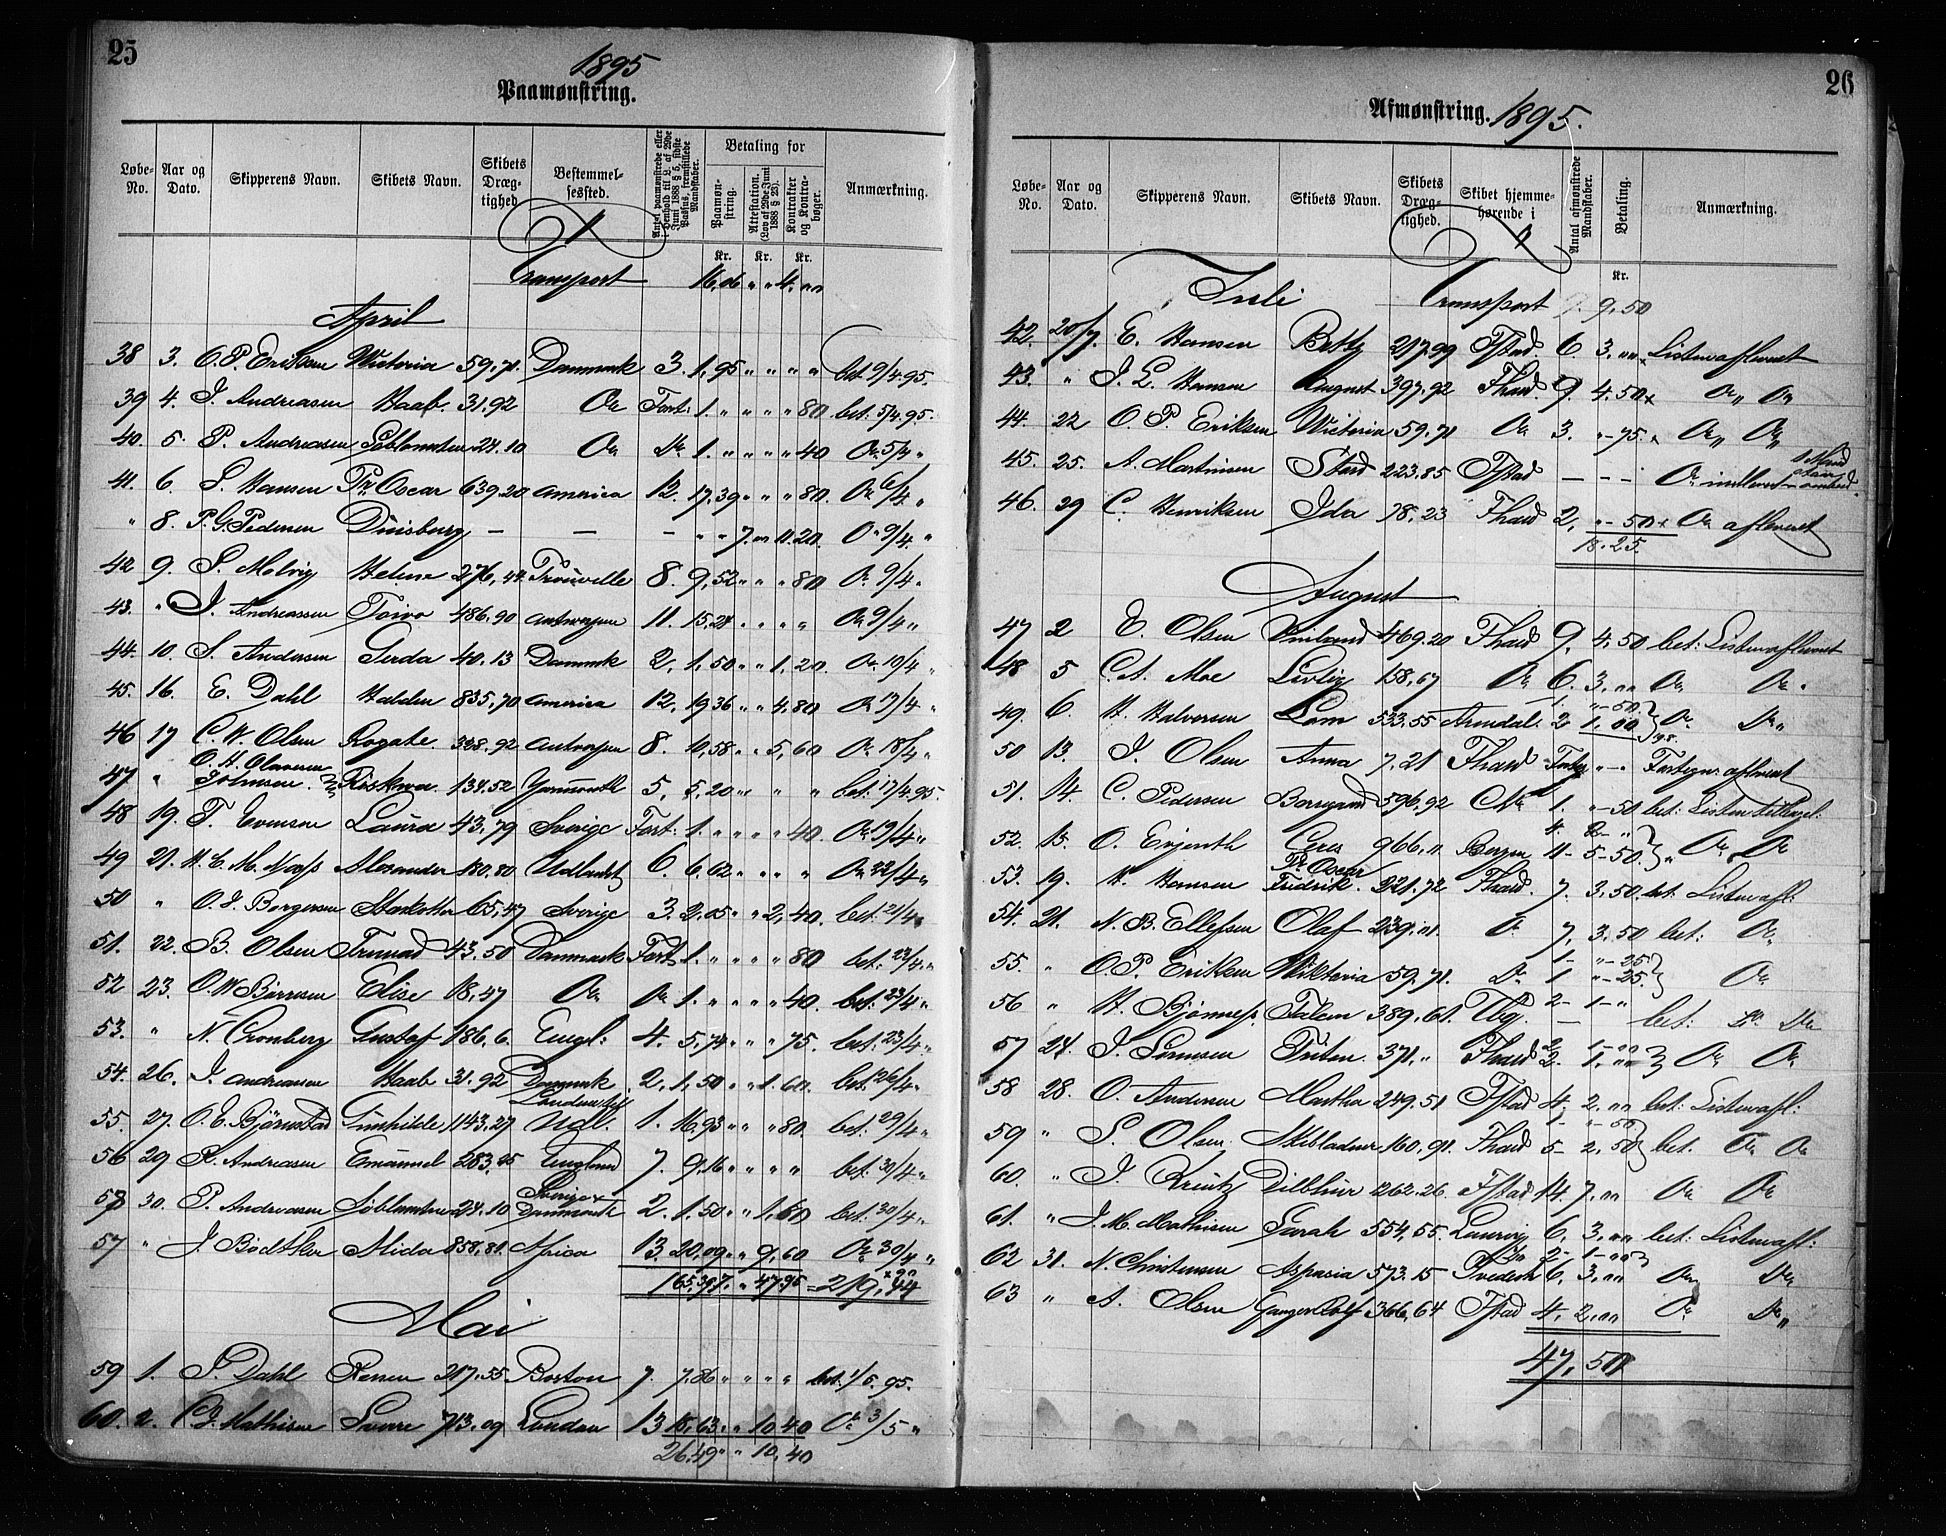 25
1895
Paamønstring.
Løbe-No.
Aar og Dato.
Skipperens Navn.
Skibets Navn.
Skibets Dræg-tighed
Bestemmel-sessted.
Antal paamønstrede eller i Henhold til L. af 29de Juni 1888 § 5, sidste Passus, fremstillede Mandskaber.
Betaling for
Paamøn-string.
Attestation. (Lov af 29de Juni 1888 § 23).
Kontrakter og Kontra-bøger.
Anmærkning.
Kr. Kr. Kr.
Transport 16,06 " " 4,00
April
38 3. O. P. Eriksen Wictoria 59,71. Danmark 3. 1,95 " " " " bet 9/4 95.
39 4. J. Andreasen Haab. 31.92 Do Fort: 1. " " " " 80 bet. 5/4 95.
40. 5. P. Andreasen Søblomsten 24.10 Do Do 1. " " " " 40 Do 5/4 "
41. 6. S. Hansen Pr. Oscar 639,20 America 12. 17,39 " " " 80. Do 6/4 "
" 8. P. G. Pedersen Duisburg — — — " " 7.00 11.20. Do 9/4. "
42 9. S. Melvig Helene 276,44 Trouville 8. 9,52 " " " 80 Do 9/4 "
43. " J. Andreassen Toivo 486.90 Antwerpen 11. 15,24 " " " " Do 9/4 "
44. 10. S. Andersen Gerda 40.13 Danmrk 2, 1,50 " " 1,20. Do 10/4 "
45. 16. E. Dahl Halden 835,70 America 12, 19,36 " " 4,80 Do 17/4 "
46 17 C. W. Olsen Rogate 328.92 Antwerpen 8. 10,58 " " 5,60 Do 18/4 "
O. H. Olavesen
47 " Johnsen Riskma 134.52 Yarmouth 5, 5,20 " " " " bet: 17/4 95.
48 19. T. Evensen Laura 43,79 Sverige Fort: 1. " " " " 40. Do 19/4 "
49 21. H. C. M. Naess Alexander 180,80 Udlandet 6. 6,62 " " " " Do 22/4 "
50 " O. J. Borgersen Starkotter 65,47 Sverige 3. 2,05 " " 2,40. bet: 21/4 "
51. 22. B. Olsen 43,50 Danmark Fort 1. " " " " 80 bet: 22/4 "
52 23. O. W. Børresen Elise 18,47 Do Do 1. " " " " 40. bet: 23/4 "
53. " N. Cronberg Gustaf 186.6. Engl: 4. 5,74 " " " 75. bet: 23/4 "
54. 26. J. Andreassen Haab 31.92 Danmrk 2, 1,50 " " 1.60. bet: 26/4 "
55. 27. O. E. Bjørnstad Gunhilde 1143,27 Udl. 1. 16,93 " " " 80. bet: 29/4 "
56 29 R. Andreasen Emanuel 283,45 England 7. 9,16 " " " " bet: 30/4 "
Sverige +
57 30. P. Andreasen Søblomsten 24.10 Danmark 2. 1.50 " " 1,60 bet: 30/4 "
57 " J. Bødtker Alida 858,81. Africa 13. 20,09 " " 9,60 Do 30/4 "
165,39 7. " 47,95 – 219,44
Mai
59 1. S. Dahl 217,55 Boston 7. 7,86 " " " " bet: 1/5. 95.
60. 2. C. J. Mathisen Sverre 713,09 London 13 18,63 " " 10,40 Do 3/5 "
26,49 " " 10,40
26
Afmønstring. 1895.
Løbe-No.
Aar og Dato.
Skipperens Navn.
Skibets Navn.
Skibets Dræg-tighed.
Skibet hjemme-hørende i
Antal afmønstrede Mandskaber.
Betaling.
Anmærkning.
Kr.
Juli Transport 9,50
42. 20/7. E. Hansen Betty 217,99 Fstad. 6. 3,00 Listen afleveret
43. " J. L. Hansen August 397,92 Fhald. 9. 4,50 Do " Do
44. 22 O. P. Eriksen Wictoria 59,71 Do 3. " – 75. Do " Do "
1 Mand
45. 25. A. Martinsen Stærd 223,85 Fstad — - - - Do indleveret
46. 29 C. Henriksen Ida 78,23 Fhald 2, " – 50 Do afleveret
18.25.
August
47 2 E. Olsen Vinland 469.20 Fhald 9, 4,50 bet: Listen afleveret
48 5 C. A. Moe Livlig 158,67 Do 6. 3,00 Do Do "
1. " – 50.
49. 6. H. Halvorsen Lom 533.55 Arendal 2 1,00 Do Do "
50 13. J. Olsen Anna 7.21 Fhald Forteg " – " Fortegn: afleveret
51. 14. C. Pedersen Borregaard 596,92 Chr 1. " – 50 bet: Listen tilbagel:
4. 2 – "
52. 15. O. Erjenth Ceres 966,11 Bergen 11 – 5 – 50. " Do Do
Pr. Oscar
53. 19. H. Hansen Fridrik. 221.72 Fhald. 7. 3,50 bet. Listen afl:
54. 21. N. B. Ellefsen Olaf 239,01. Do 7, 3.50 bet: Do "
1 – " – 25
55. " O. P. Eriksen Wiktoria 59,71. Do 1 " – 25. Do
2 – 1 – "
56 " H. Bjønness. Falem 389,61. Tbg. — bet: Do Do
2 – 1 – 00
57 24. J. Sørensen Triton 371. " Fhald 2. 1,00 Do Do
58 28. O. Andersen Martha 249.51 Fstad 4, 2,00 bet: Listen afl:
1 – " – 50
59 " S. Olsen Skibladner 160,91. Fhald 5 – 2,50 bet. Do Do
60. " J. Kreutz Dilbhur 1262.26 Fstad 14. 7,00 Do Do
61. " J. M. Mathisen Sarah 554,55 Laurvig 6, 3,00 bet: Listen afl:
2 – 1 – 00
62 31. N. Christensen Aspasia 573.15 Tvedestr 6, 3,00 Do Do
63 " A. Olsen Ganger Rolf 366,64 Fstad 4, 2,00 Do Do "
47,50